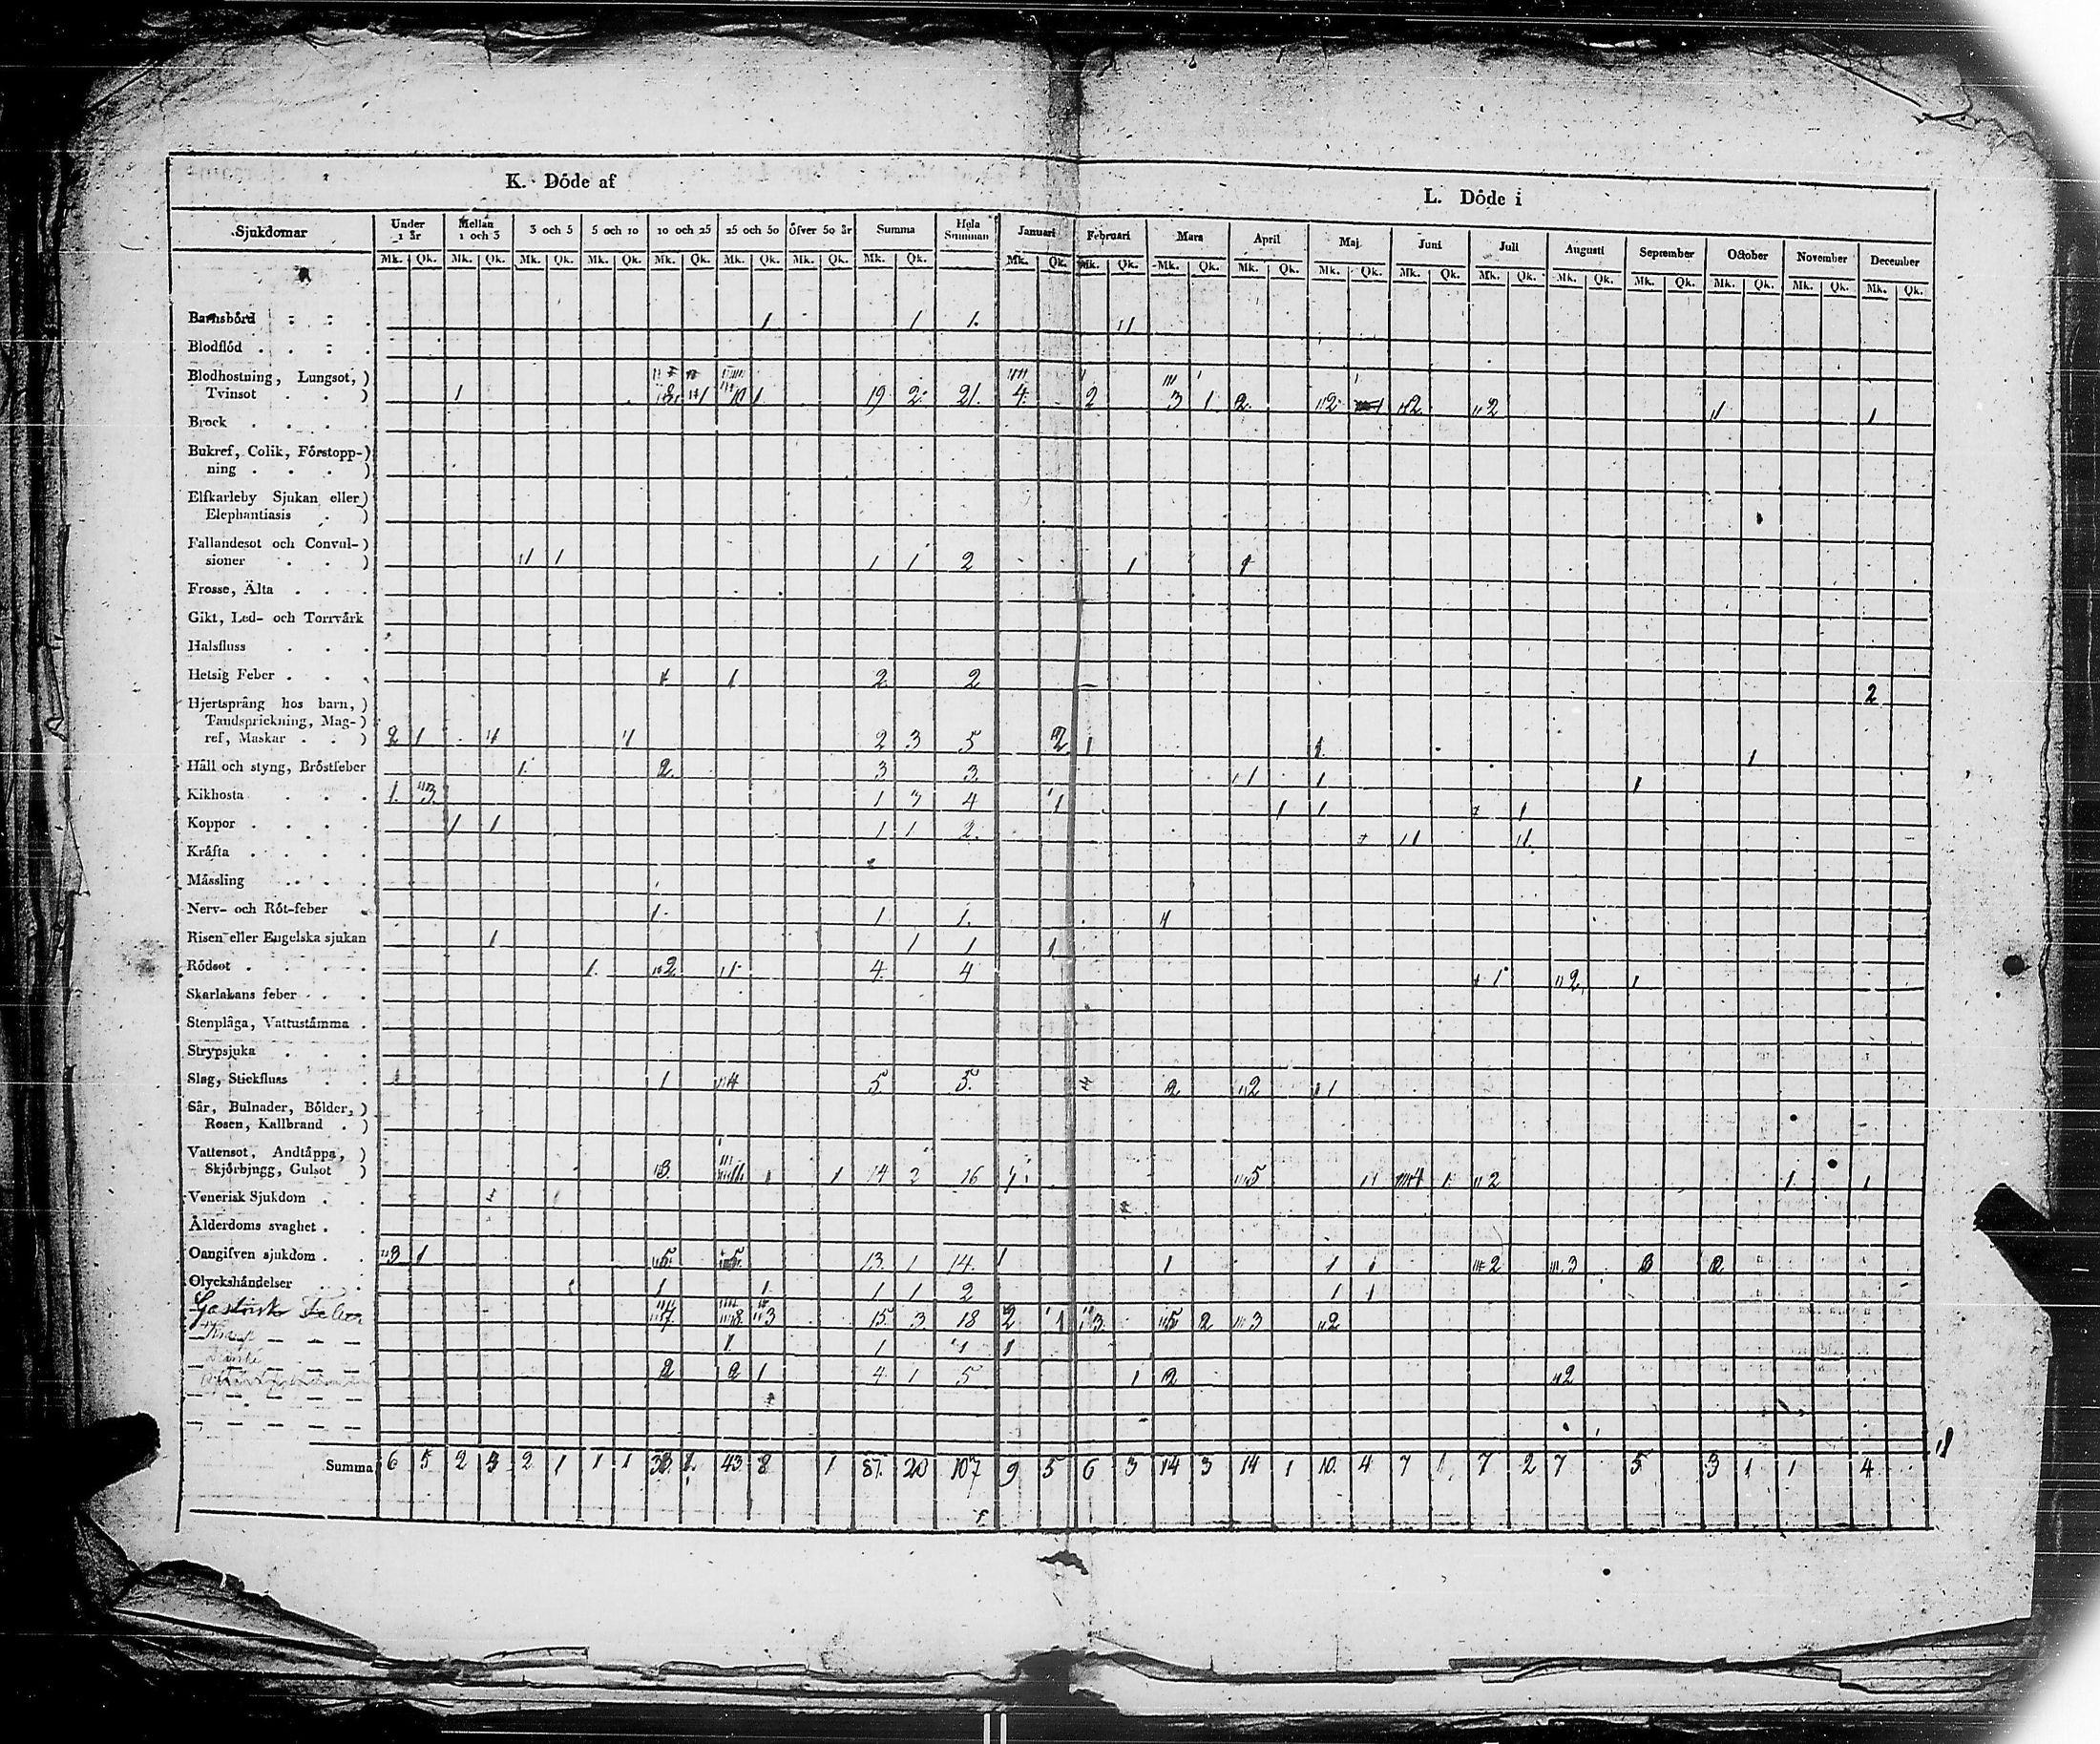 K. Döde af
L. Döde i
Sjukdomar Under 1 år Mellan 1 och 3 3 och 5 5 och 10 10 och 25 25 och 50 öfver 50 år Summa Hela Summan Januari Februari Mars April Maj Juni Juli Augusti September October November December
Mk. Qk. Mk. Qk. Mk. Qk. Mk. Qk. Mk. Qk. Mk. Qk. Mk. Qk. Mk. Qk. Mk. Qk. Mk. Qk. Mk. Qk. Mk. Qk. Mk. Qk. Mk. Qk. Mk. Qk. Mk. Qk. Mk. Qk. Mk. Qk. Mk. Qk. Mk. Qk.
Barnsbörd 1 1 1. 1
Blodflöd
Blodhostning, Lungsot,)
Tvinsot 1 8 1 10 1 19 2 21. 4. 2 3 1 2. 2 1 2 2 1 1
Brock
Bukref, Colik, Förstopp-)
ning
Elfkarleby Sjukan eller)
Elephantiasis
Fallandesot och Convul-)
sioner 1 1 1 1 2 1 1
Frosse, Älta
Gikt, Led- och Torrvärk
Halsfluss
Hetsig Feber 1 1 2 2 2
Hjertsprång hos barn,)
Tandsprickning, Mag-)
ref, Maskar 2 1 1 1 2 3 5 2 1 1 1
Håll och styng, Bröstfeber 1. 2. 3 3. 1 1 1
Kikhosta 1. 3. 1 3 4 1 1 1 1
Koppor 1 1 1 1 2. 1 1
Kräfta
Mässling
Nerv- och Röt-feber 1 1 1. 1
Risen eller Engelska sjukan 1 1 1 1
Rödsot 1. 2 1 4. 4 1 2 1
Skarlakans feber
Stenplåga, Vattustämma
Strypsjuka
Slag, Stickfluss 1 4 5 5. 2 2 1
Sår, Bulnader, Bölder,)
Rosen, Kallbrand
Vattensot, Andtäppa,)
Skjörbjugg, Gulsot 3. 11. 1 1 14 2 16 1 5 1 4 1 2 1 1
Venerisk Sjukdom
Ålderdoms svaghet
Oangifven sjukdom 3 1 5. 5. 13. 1 14. 1 1 1 1 2 3 2
Olyckshändelser 1 1. 1 1 2 1 1
Gastrisk Feber 7. 8. 3 15. 3. 18 2 1 3. 5 2 3 2
1 1 1 1
2 2 1 4 1 5 1 2 2
Summa 6 5 2 2 1 1 1 43 8 1 87. 20 107 9 5 6 3 14 3 14 1 10. 4 7 1 7 2 7 5 3 1 1 4